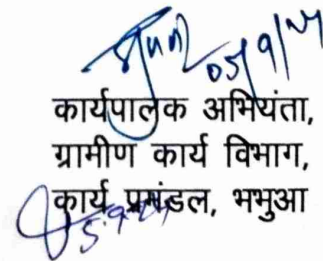 05/9/24
कार्यपालक अभियंता,
ग्रामीण कार्य विभाग,
कार्य प्रमंडल, भभुआ
5.9.24